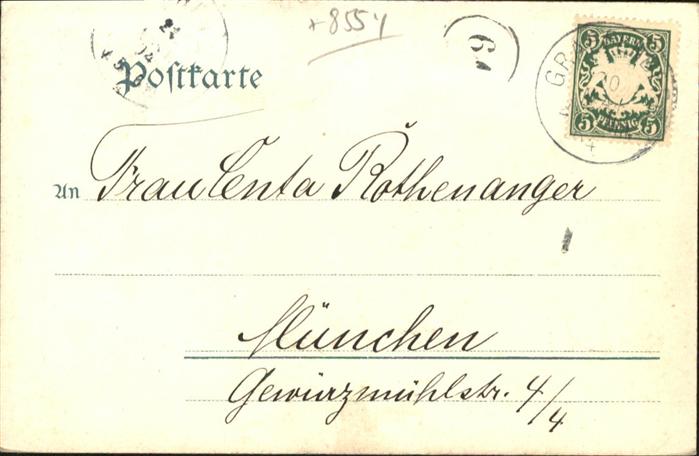 +8554
Postkarte
5 BAYERN 5
5 PFENNIG 5
An Frau Centa Rothenanger
München
Gewürzmühlstr. 4/4